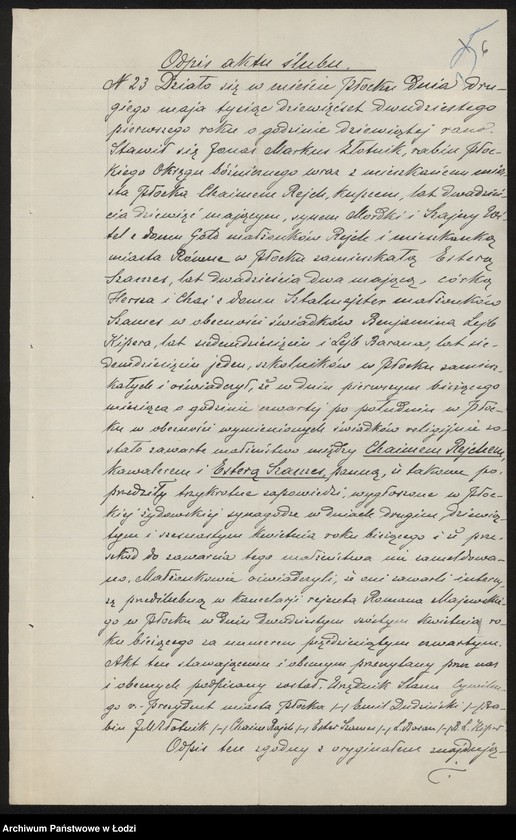 6
Odpis aktu ślubu.
N 23 Działo się w mieście Płocku dnia dru-
giego maja tysiąc dziewięćset dwudziestego
pierwszego roku o godzinie dziewiątej rano.
Stawił się Jonas Markus Złotnik, rabin Płoc-
kiego Okręgu bóżnicznego wraz z mieszkańcem mia-
sta Płocka Chaimem Rejch, kupcem, lat dwadzieś-
cia dziewięć mającym, synem Mordki i Szajny
z domu małżonków Rejch i mieszkanką
miasta Równe w Płocku zamieszkałą Esterą
Szames, lat dwadzieścia dwa mającą, córką
Hersza i Chai z domu Sztalmejster małżonków
Szames w obecności świadków Benjamina Lejb
Kipera, lat siedemdziesięciu i Lejb Barana, lat sie-
demdziesięciu jeden, szkolników w Płocku zamiesz-
kałych i oświadczył, iż w dniu pierwszym bieżącego
miesiąca o godzinie czwartej po południu w Płoc-
ku w obecności wymienionych świadków religijnie zo-
stało zawarte małżeństwo między Chaimem Rejchem,
kawalerem i Esterą Szames, panną, iż takowe po-
przedziły trzykrotne zapowiedzi, wygłoszone w Płoc-
kiej żydowskiej synagodze w dniach drugim, dziewią-
tym i szesnastym kwietnia roku bieżącego i iż prze-
szkód do zawarcia tego małżeństwa nie zameldowa-
no. Małżonkowie oświadczyli, iż oni zawarli intercy-
zę przedślubną w kancelarji rejenta Romana Majewskie-
go w Płocku w dniu dwudziestym szóstym kwietnia ro-
ku bieżącego za numerem pięćdziesiątym czwartym.
Akt ten stawającemu i obecnym przeczytany przez nas
i obecnych podpisany został. Urzędnik Stanu Cywilne-
go v.-prezydent miasta Płocka /-/ Emil Dudziński /-/ Ra-
bin J.M. Złotnik /-/ Chaim Rejch /-/ Ester Szames /-/ L. Baran /-/ B. L. Kiper
Odpis ten zgodny z oryginałem znajdują-
Archiwum Państwowe w Łodzi
Archiwum Państwowe w Łodzi